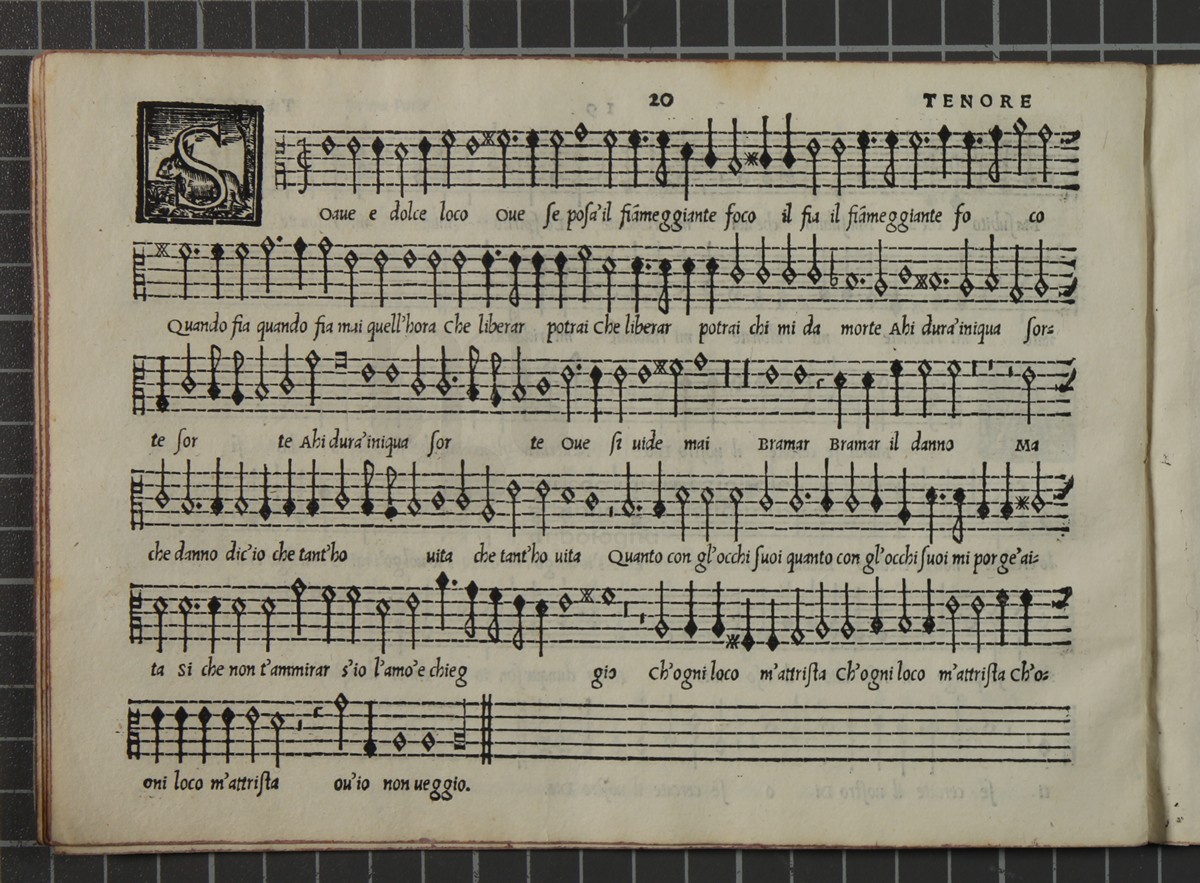 20 TENORE
SOaue e dolce loco Oue se posa'il fiãmeggiante foco il fia il fiãmeggiante fo co
Quando fia quando fia mai quell'hora Che liberar potrai Che liberar potrai chi mi da morte Ahi dura'iniqua sor=
te sor te Ahi dura'iniqua sor te Oue si uide mai Bramar Bramar il danno Ma
che danno dic'io che tant'ho uita che tant'ho uita Quanto con gl'occhi suoi quanto con gl'occhi suoi mi porge'ai=
ta Si che non t'ammirar s'io l'amo'e chieg gio Ch'ogni loco m'attrista Ch'ogni loco m'attrista Ch'o=
gni loco m'attrista ou'io non ueggio.